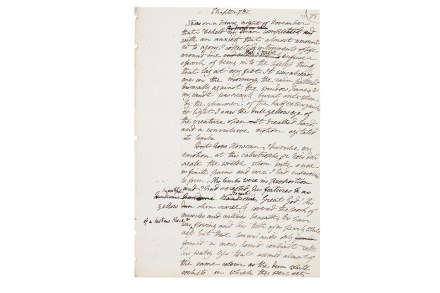 Chapter 7th
It was on a dreary night of November
that I beheld my man compleated
with an anxiety that almost amount
ed to agony I collected instruments of life
around me that I might infuse a
spark of being into the lifeless thing
that lay at my feet. It was already
one in the morning, the rain pattered
dismally against the window panes &
my candle was nearly burnt out, when
by the glimmer of the half extinguish
ed light I saw the dull yellow eye of
the creature open. It breathed hard,
and a convulsive motion agitated
its limbs.
But how How can I describe my
emotion at this catastrophe; or how deli
neate the wretch whom with such
infinite pains and care I had endeavoured
to form. His limbs were in proportion
and I had selected his features as
handsome. Great God! His
yellow skin scarcely covered the work of
muscles and arteries beneath; his hair
of a lustrous black &
flowing and his teeth of a pearly white
ness but these luxuriances only
formed a more horrid contrast with
his watry eyes that seemed almost of
the same colour as the dun white
sockets in which they were set,